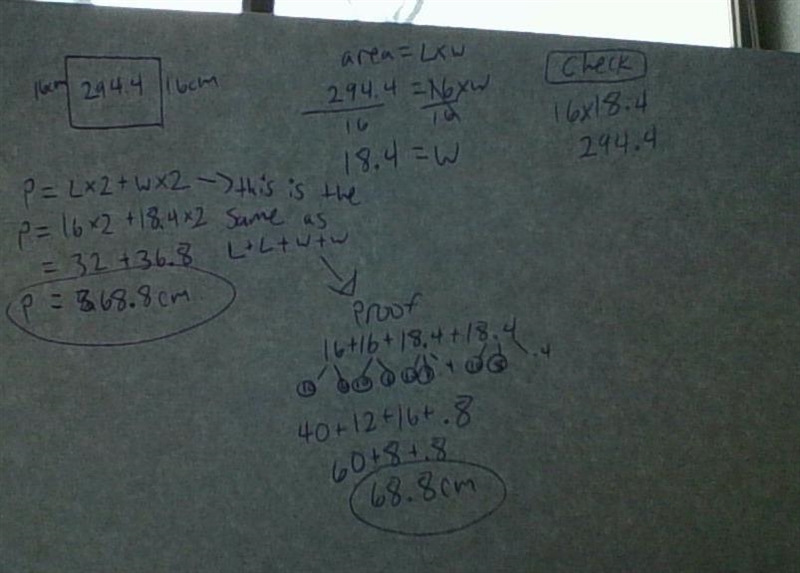 16cm 294.4 16cm
area = L×W
294.4 = 16×W
16 16
18.4 = W
Check
16×18.4
294.4
P = L×2 + W×2 → this is the
P = 16×2 + 18.4×2 same as
= 32 + 36.8 L+L+W+W
P = 68.8cm
Proof
16+16+18.4+18.4
.4
40+12+16+.8
60+8+.8
68.8cm